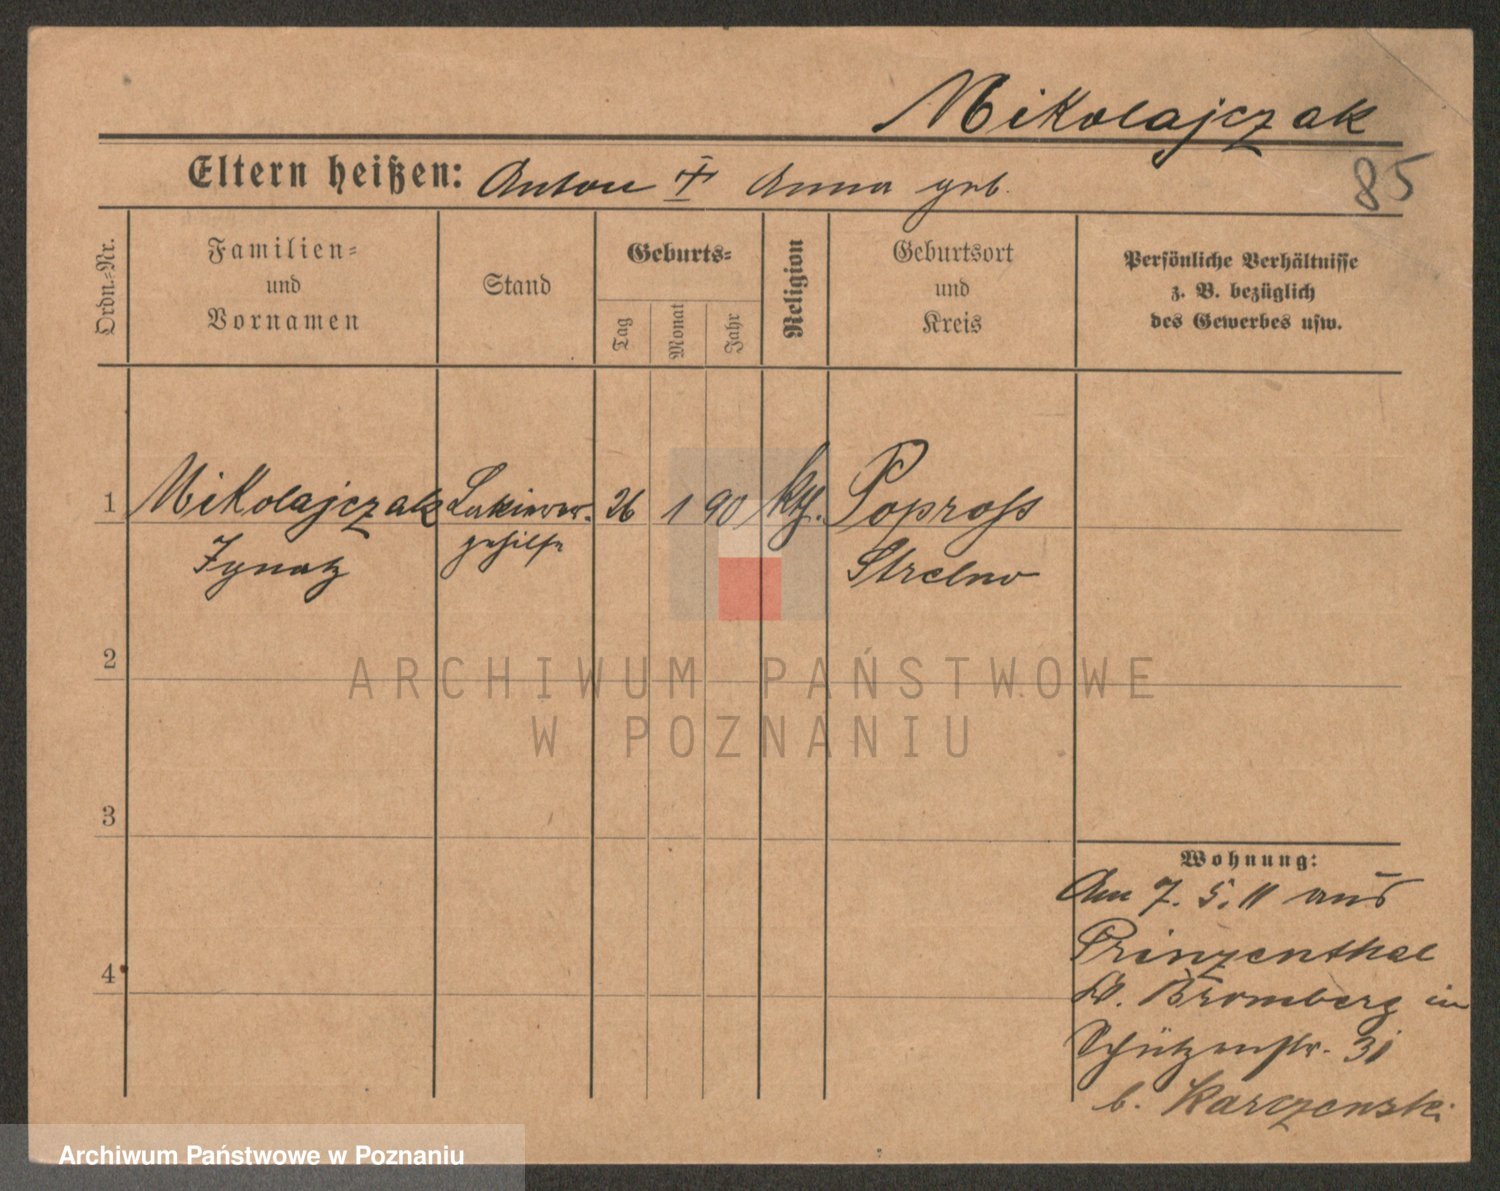 Mikolajczak
85
Eltern heißen: Anton ☩ Anna geb.
Ordn.-Nr.
Familien-
und
Vornamen
Stand
Geburts-
Tag
Monat
Jahr
Religion
Geburtsort
und
Kreis
Persönliche Verhältnisse
z. B. bezüglich
des Gewerbes usw.
1 Mikolajczak 26 1 90 kth. Popross
Ignatz gehilfe Strelno
2
3
4
Wohnung:
Am 7. 5. 11 aus
Prinzenthal
Bromberg in
Schützenstr. 31
b. Karczenski
ARCHIWUM PAŃSTWOWE
W POZNANIU
Archiwum Państwowe w Poznaniu